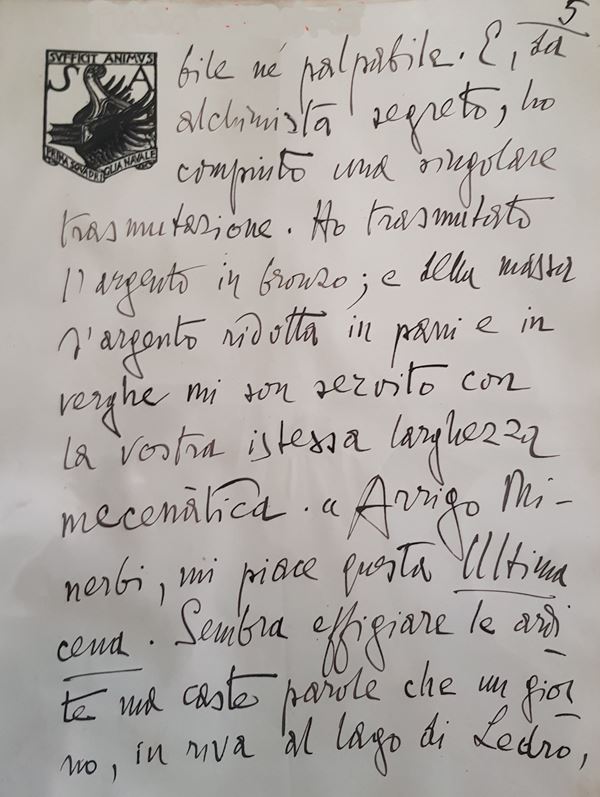 5
SVFFICIT ANIMVS
S A
PRIMA SQVADRIGLIA NAVALE
bile né palpabile. E, da
alchimista segreto, ho
compiuto una singolare
trasmutazione. Ho trasmutato
l'argento in bronzo; e della massa
d'argento ridotta in pani e in
verghe mi son servito con
la vostra istessa larghezza
mecenàtica. « Arrigo Mi-
nerbi, mi piace questa Ultima
cena. Sembra effigiare le ardi
te ma caste parole che un gior
no, in riva al lago di Ledro,